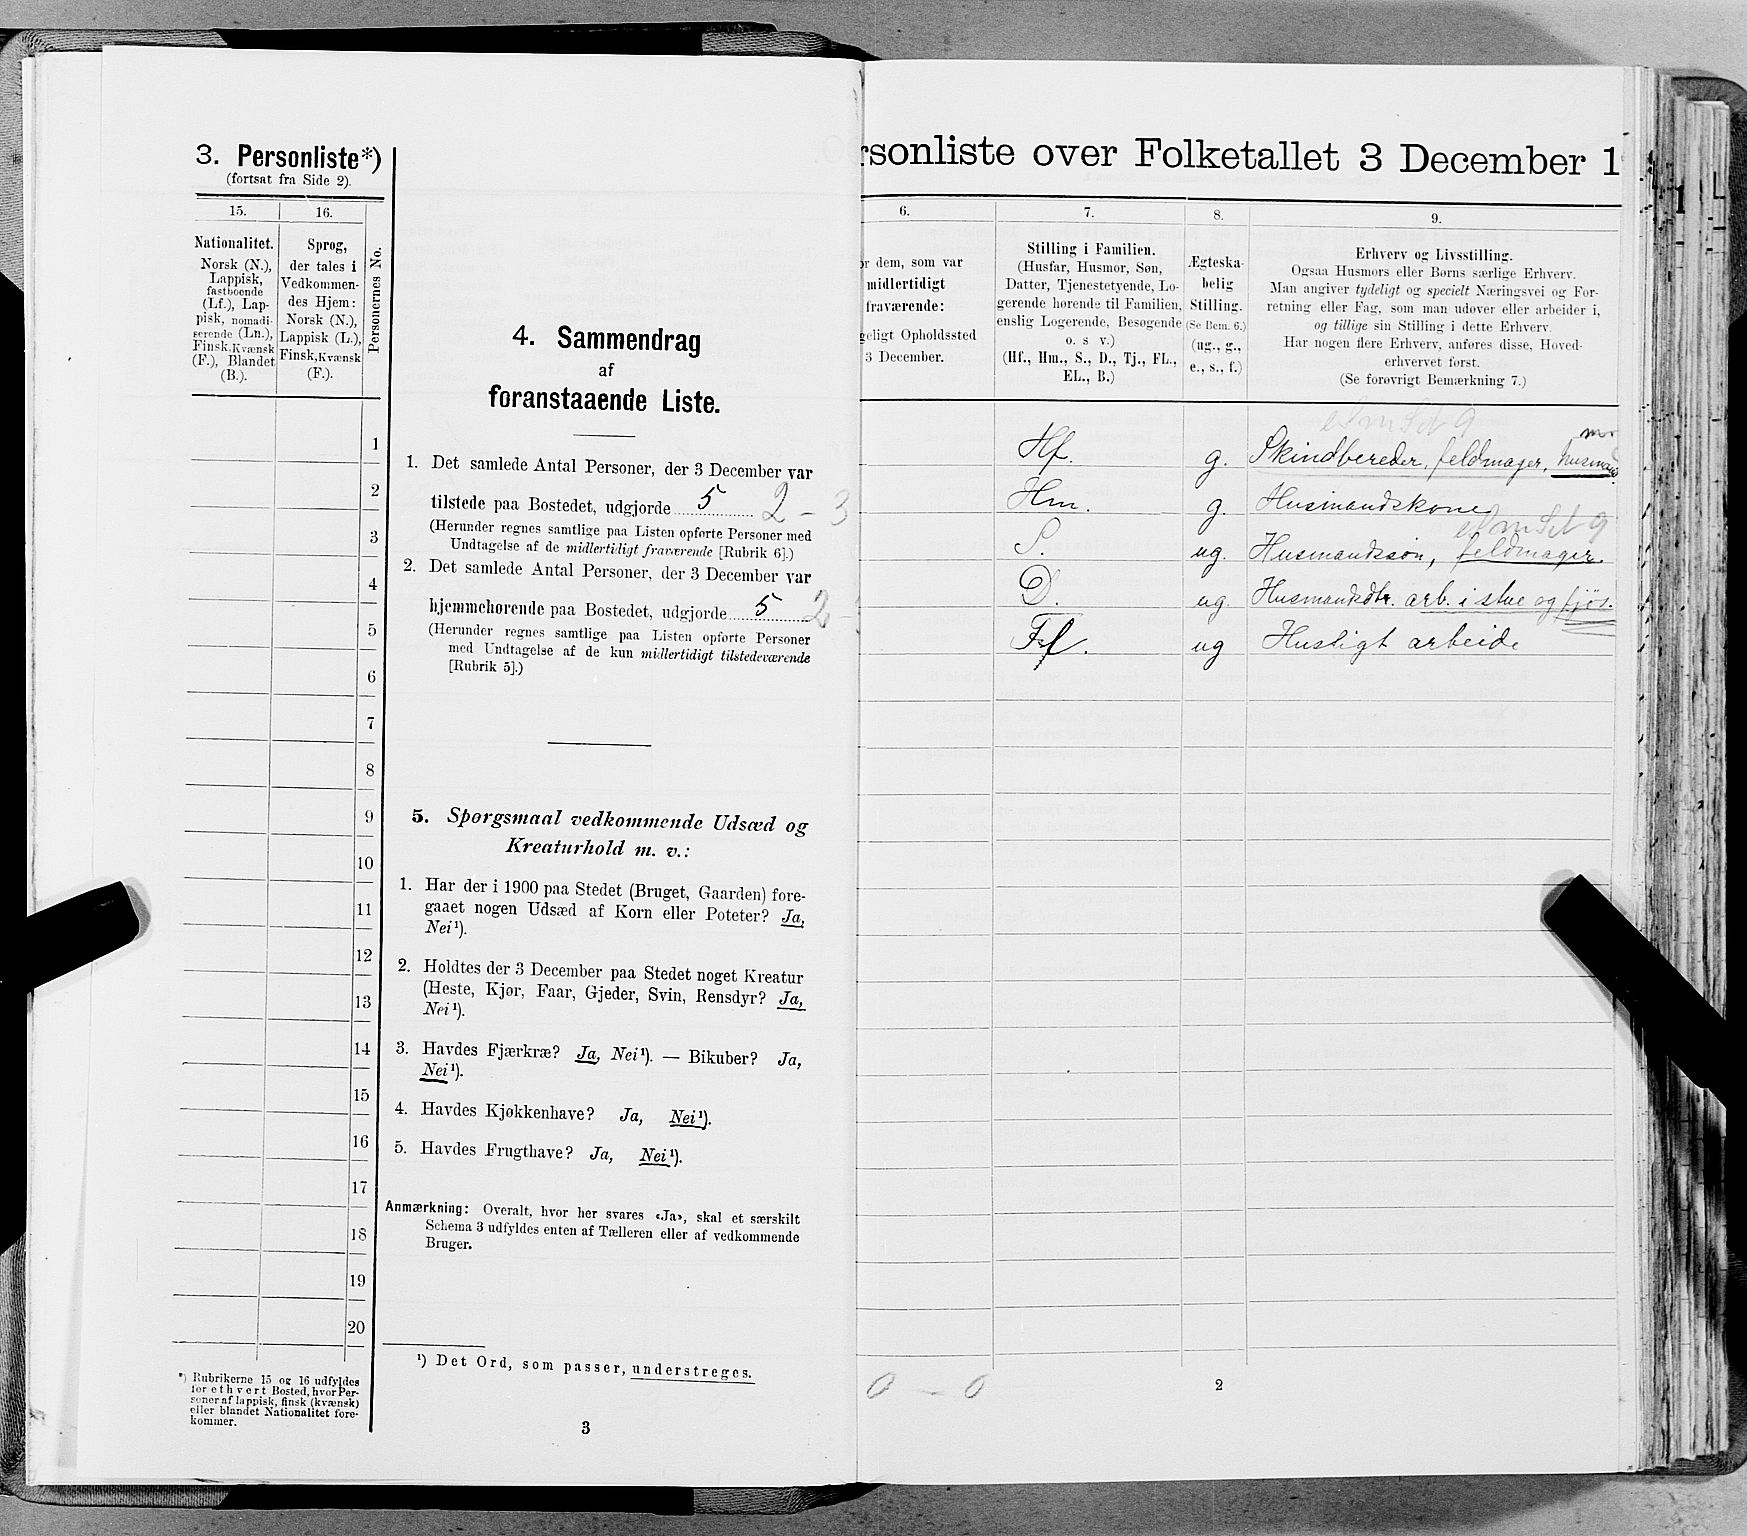 3. Personliste*)
(fortsat fra Side 2).
15.
16.
Personernes No.
Nationalitet.
Norsk (N.),
Lappisk,
fastboende
(Lf.), Lap-
pisk, nomadi-
serende (Ln.),
Finsk, Kvænsk
(F.), Blandet
(B.).
Sprog,
der tales i
Vedkommen-
des Hjem:
Norsk (N.),
Lappisk (L.),
Finsk, Kvænsk
(F.).
1
2
3
4
5
6
7
8
9
10
11
12
13
14
15
16
17
18
19
20
*) Rubrikerne 15 og 16 udfyldes
for ethvert Bosted, hvor Per-
soner af lappisk, finsk (kvænsk)
eller blandet Nationalitet fore-
kommer.
4. Sammendrag
af
foranstaaende Liste.
1. Det samlede Antal Personer, der 3 December var
tilstede paa Bostedet, udgjorde 5 2 - 3
(Herunder regnes samtlige paa Listen opførte Personer med
Undtagelse af de midlertidigt fraværende [Rubrik 6].)
2. Det samlede Antal Personer, der 3 December var
hjemmehørende paa Bostedet, udgjorde 5 2 -
(Herunder regnes samtlige paa Listen opførte Personer
med Undtagelse af de kun midlertidigt tilstedeværende
[Rubrik 5].)
5. Spørgsmaal vedkommende Udsæd og
Kreaturhold m. v.:
1. Har der i 1900 paa Stedet (Bruget, Gaarden) fore-
gaaet nogen Udsæd af Korn eller Poteter? Ja,
Nei¹).
2. Holdtes der 3 December paa Stedet noget Kreatur
(Heste, Kjør, Faar, Gjeder, Svin, Rensdyr? Ja,
Nei¹).
3. Havdes Fjærkræ? Ja, Nei¹). — Bikuber? Ja,
Nei¹).
4. Havdes Kjøkkenhave? Ja, Nei¹).
5. Havdes Frugthave? Ja, Nei¹).
Anmærkning: Overalt, hvor her svares «Ja», skal et særskilt
Schema 3 udfyldes enten af Tælleren eller af vedkommende
Bruger.
¹) Det Ord, som passer, understreges.
3
rsonliste over Folketallet 3 December 1
6.
7.
8.
9.
r dem, som var
midlertidigt
fraværende:
geligt Opholdssted
3 December.
Stilling i Familien.
(Husfar, Husmor, Søn,
Datter, Tjenestetyende, Lo-
gerende hørende til Familien,
enslig Logerende, Besøgende
o. s v.)
(Hf., Hm., S., D., Tj., FL.,
EL., B.)
Ægteska-
belig
Stilling.
(Se Bem. 6.)
(ug., g.,
e., s., f.)
Erhverv og Livsstilling.
Ogsaa Husmors eller Børns særlige Erhverv.
Man angiver tydeligt og specielt Næringsvei og For-
retning eller Fag, som man udøver eller arbeider i,
og tillige sin Stilling i dette Erhverv.
Har nogen flere Erhverv, anføres disse, Hoved-
erhvervet først.
(Se forøvrigt Bemærkning 7.)
Hf. g. Skindbereder, feldmager, husmand
Hm. g. Husmandskone
S. ug. Husmandssøn, feldmager.
D. ug. Husmandsdtr. arb. i stue og fjøs.
ug Husligt arbeide
0 - 0
2